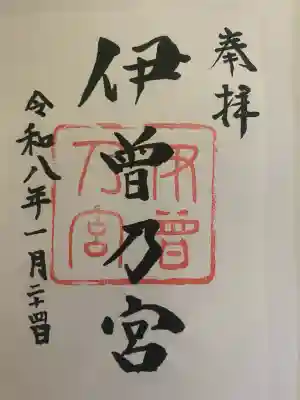 奉拝
伊曽乃宮
伊曽乃宮
令和八年一月二十四日